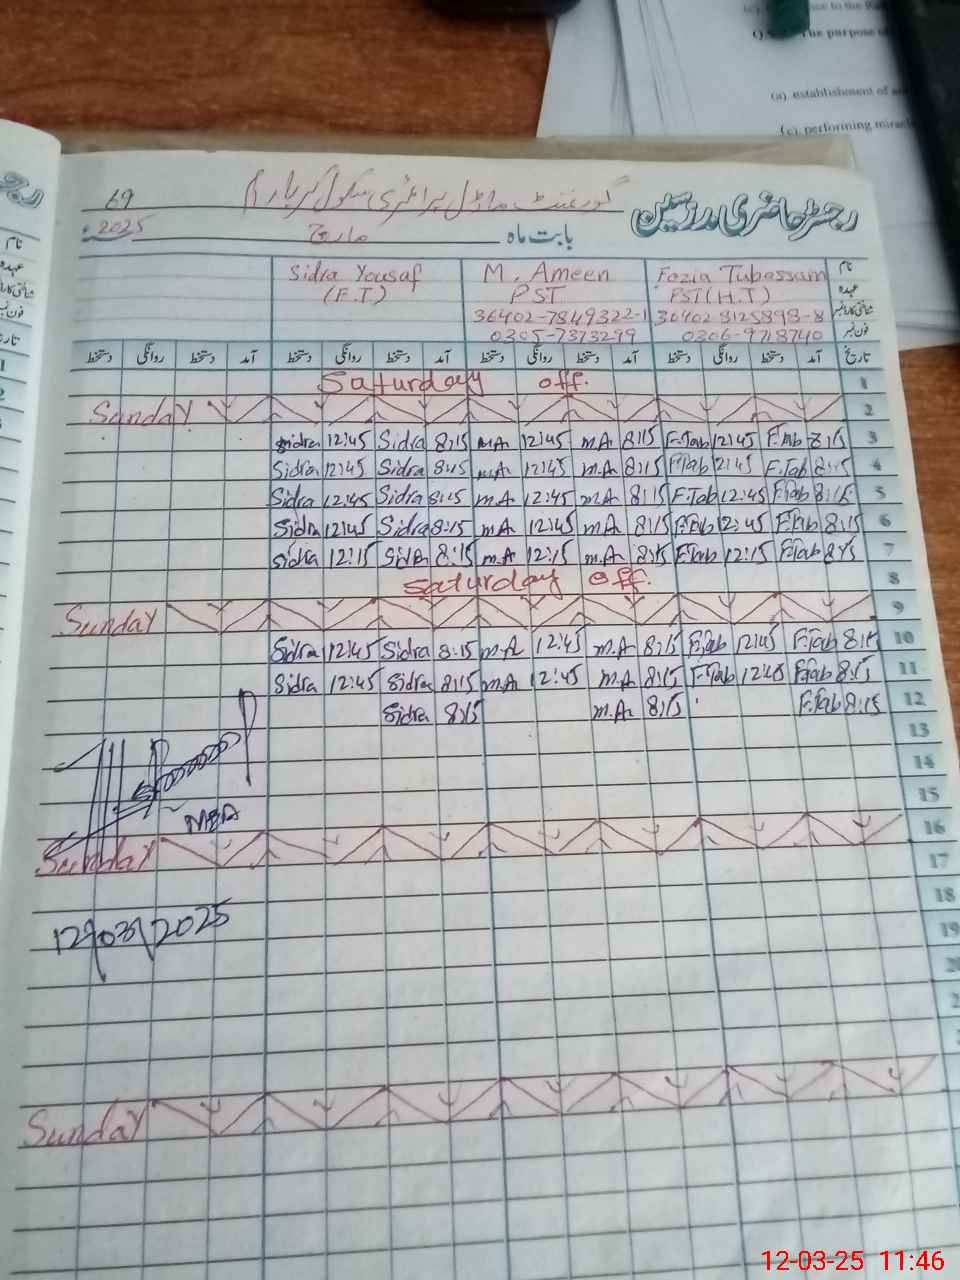 (a). establishment of
(c). performing
The purpose of
69 گورنمنٹ ماڈل پرائمری سکول
رجسٹر حاضری مدرسین
2025ء مارچ بابت ماہ
Sidra Yousaf M. Ameen Fozia Tubassam نام
(F.T) PST PST (H.T) عہدہ
36402-7849322-1 36402-8125898-8
0305-7373299 0306-9718740 فون نمبر
دستخط روانگی دستخط آمد دستخط روانگی دستخط آمد دستخط روانگی دستخط آمد دستخط روانگی دستخط آمد تاریخ
Saturday off. 1
Sunday 2
Sidra 12:45 Sidra 8:15 M.A 12:45 M.A 8:15 F.Tab 12:45 F.Tab 8:15 3
Sidra 12:45 Sidra 8:15 M.A 12:45 M.A 8:15 F.Tab 12:45 F.Tab 8:15 4
Sidra 12:45 Sidra 8:15 M.A 12:45 M.A 8:15 F.Tab 12:45 F.Tab 8:15 5
Sidra 12:45 Sidra 8:15 M.A 12:45 M.A 8:15 F.Tab 12:45 F.Tab 8:15 6
Sidra 12:15 Sidra 8:15 M.A 12:15 M.A 8:15 F.Tab 12:15 F.Tab 8:15 7
Saturday off. 8
Sunday 9
Sidra 12:45 Sidra 8:15 M.A 12:45 M.A 8:15 F.Tab 12:45 F.Tab 8:15 10
Sidra 12:45 Sidra 8:15 M.A 12:45 M.A 8:15 F.Tab 12:45 F.Tab 8:15 11
Sidra 8:15 M.A 8:15 F.Tab 8:15 12
13
14
15
Sunday 16
17
18
12/03/2025 19
Sunday
12-03-25 11:46